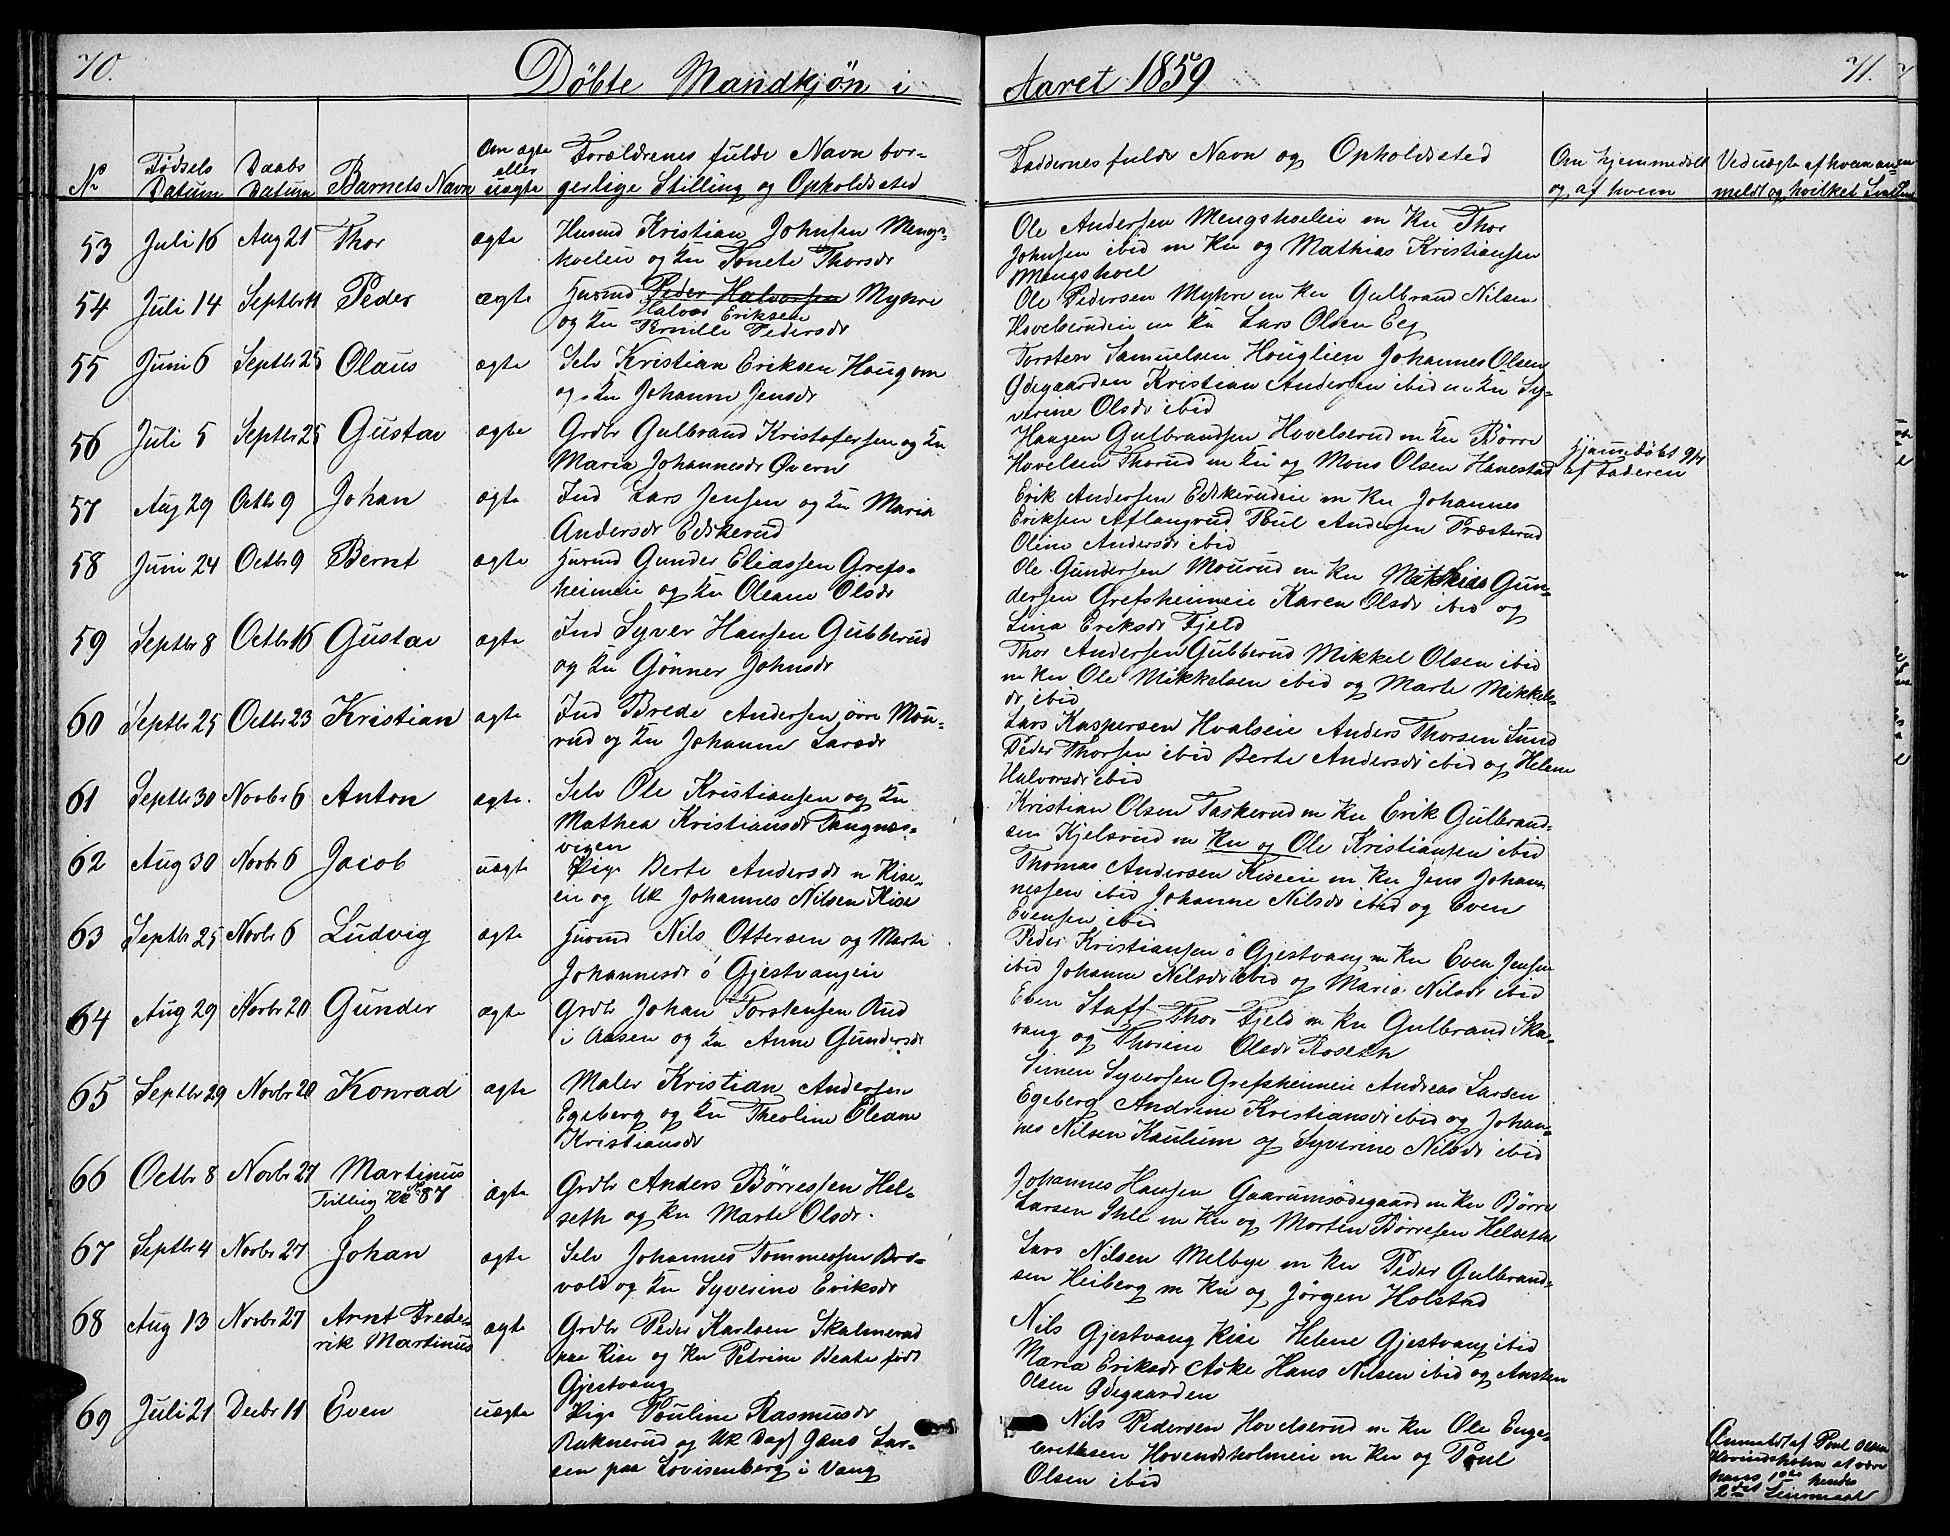 70.
Döbte Mandkjön i
Aaret 1859
71.
No
Födsels Datum
Daabs Datum
Barnets Navn
Om ægte eller uægte
Forældrenes fulde Navn bor-
gerlige Stilling og Opholdsted
Faddernes fulde Navn og Opholdsted
Om hjemmedöbt
og af hvem
Ved uægte af hvem an-
meldt og hvilket
53 Juli 16 Aug 21 Thor ægte
Husmd Kristian Johnsen Mengs-
hoeleie og Ku Tonete Thorsdr
Ole Andersen Mengshoeleie m Ku Thor
Johnsen ibid m Ku og Mathias Kristiansen
Mengshoel
54 Juli 14 Septbr 11 Peder ægte
Husmd Peder Halvorsen Myhre
Halvor Eriksen
og Ku Pernille Pedersdr
Ole Pedersen Myhre m Ku Gulbrand Nilsen
Hovelserudeie m Ku Lars Olsen Eeg
55 Juni 6 Septbr 25 Olaus ægte
Selv Kristian Eriksen Hougom
og Ku Johanne Jensdr
Torsten Samuelsen Houglien Johannes Olsen
Ödegaarden Kristian Andersen ibid m Ku Sy-
verine Olsdr ibid
56 Juli 5 Septbr 25 Gustav ægte
Grdbr Gulbrand Kristofersen og Ku
Maria Johannesdr Övern
Haagen Gulbrandsen Hovelserud m Ku Börre
Hovelsen Thorud m Ku og Mons Olsen Hanestad
Hjemmedöbt 9/7
af Faderen
57 Aug 29 Octbr 9 Johan ægte
Ind Lars Jensen og Ku Maria
Andersdr Edskerud
Erik Andersen Edskerudeie m Ku Johannes
Eriksen Aflangrud Poul Andersen Præsterud
Oline Andersdr ibid
58 Juni 24 Octbr 9 Bernt ægte
Husmd Gunder Eliassen Grefs-
heimeie og Ku Oleane Olsdr
Ole Gundersen Mourud m Ku Mathias Gun-
dersen Grefsheimeie Karen Olsdr ibid og
Lina Eriksdr Fjeld
59 Septbr 8 Octbr 16 Gustav ægte
Ind Syver Hansen Gubberud
og Ku Gönner Johnsdr
Thor Andersen Gubberud Mikkel Olsen ibid
m Ku Ole Mikkelsen ibid og Marte Mikkels-
dr ibid
60 Septbr 25 Octbr 23 Kristian ægte
Ind Brede Andersen övre Mou-
rud og Ku Johanne Larsdr
Lars Kaspersen Hvalseie Anders Thorsen Sund
Peder Thorsen ibid Berte Andersdr ibid og Helene
Halvorsdr ibid
61 Septbr 30 Novbr 6 Anton ægte.
Selv Ole Kristiansen og Ku
Mathea Kristiansdr Tangnæs-
vigen
Kristian Olsen Taskerud m Ku Erik Gulbrand-
sen Kjelsrud m Ku og Ole Kristiansen ibid
62 Aug 30 Novbr 6 Jacob uægte
Pige Berte Andersdr n Kise-
eie og Uk Johannes Nilsen Kise
Thomas Andersen Kiseeie m Ku Jens Johan-
nessen ibid Johanne Nilsdr ibid og Even
Evensen ibid
63 Septbr 25 Novbr 6 Ludvig ægte
Husmd Nils Ottersen og Marte
Johannesdr ö Gjestvangeie
Peder Kristiansen ö Gjestvang m Ku Even Jensen
ibid Johanne Nilsdr ibid og Maria Nilsdr ibid
64 Aug 29 Novbr 20 Gunder ægte
Grdbr Johan Torstensen Rud
i Aasen og Ku Anne Gundersdr
Even Staff Thor Fjeld m Ku Gulbrand Ska-
vang og Thorine Olsdr Roseth
65 Septbr 29 Novbr 20 Konrad ægte
Maler Kristian Andersen
Egeberg og Ku Theoline Eleane
Kristiansdr
Simen Syversen Grefsheimeie Andreas Larsen
Egeberg Andrine Kristiansdr ibid og Johan-
nes Nilsen Kaulum og Syverine Nilsdr ibid
66 Octbr 8 Novbr 27 Martinus ægte
Tvilling Kk No 87
Grdbr Anders Börresen Hel-
seth og Ku Marte Olsdr.
Johannes Hansen Gaarumsödegaard m Ku Börre
Larsen Ihle m Ku og Morten Börresen Helseth
67 Septbr 4 Novbr 27 Johan ægte
Selv Johannes Tommessen Bor-
vold og Ku Syverine Eriksdr
Lars Nilsen Melbye m Ku Peder Gulbrand-
sen Heiberg m Ku og Jörgen Holstad
68 Aug 13 Novbr 27 Arnt Frede-
rik Martinus ægte
Grdbr Peder Karlsen Skalmerud
paa Kise og Ku Petrine Beate födt
Gjestvang
Nils Gjestvang Kise Helene Gjestvang ibid
Maria Eriksdr Aske Hans Nilsen ibid og Ansten
Olsen Ödegaarden
69 Juli 21 Decbr 11 Even uægte
Pige Pouline Rasmusdr
Ruknerud og Uk Dagf Jens Lar-
sen paa Lovisenberg i Vang
Nils Pedersen Hovelserud m Ku Ole Enge-
bretksen Hovendsholmeie m Ku og Poul
Olsen ibid
Anmeldt af Poul Olsen
Hovindsholm at være
hans 1ste hendes
2det Leiermaal